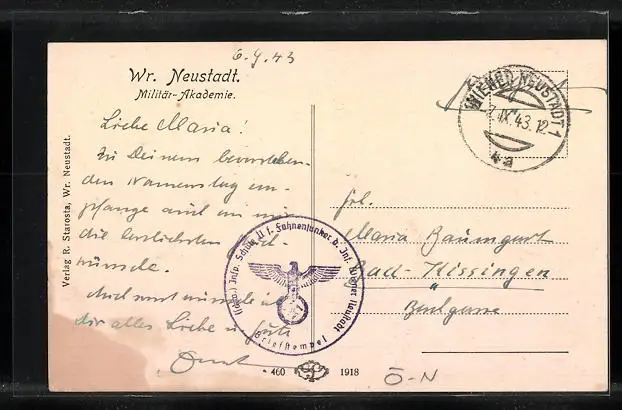 6.9.43
Wr. Neustadt.
Militär-Akademie.
WIENER NEUSTADT 1
7.IX.43.12
4a
Liebe Maria!
Zu Deinem bevorstehen-
den Namenstag em-
pfange auch von mir
die herzlichsten Glück-
wünsche.
Auch sonst wünsche ich
Dir alles Liebe u. Gute
Frl.
Maria Baumgart
Bad-Kissingen
Verlag R. Starosta, Wr. Neustadt.
Schule II f. Fahnenjunker d. Inf. Wiener Neustadt
Briefstempel
460 1918
Ö-N